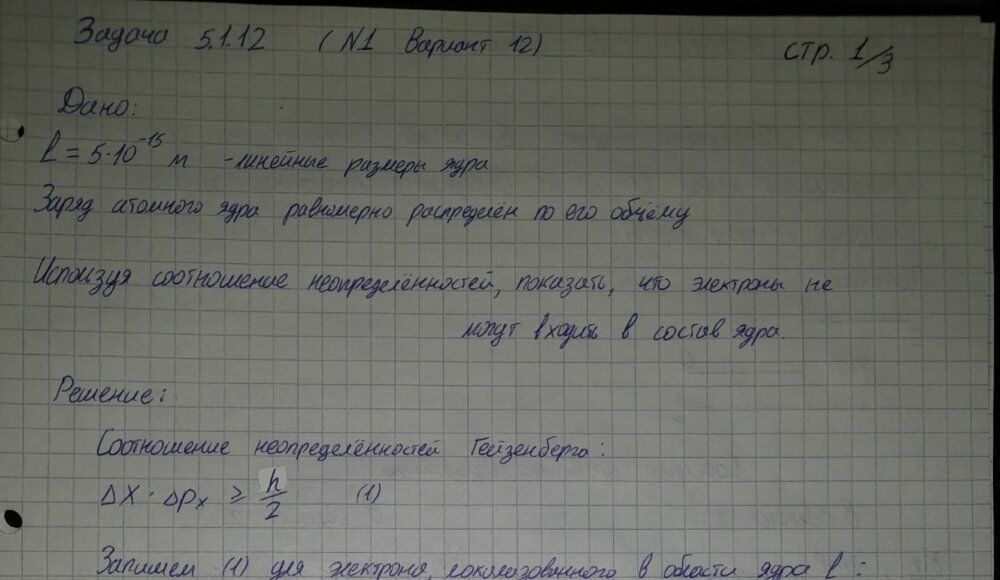 Задача 5.1.12 (N1 Вариант 12)
стр. 1/3
Дано:
l = 5·10⁻¹⁵ м - линейные размеры ядра
Заряд атомного ядра равномерно распределён по его объёму
Используя соотношение неопределённостей, показать, что электроны не
могут входить в состав ядра.
Решение:
Соотношение неопределённостей Гейзенберга:
Δx · Δpₓ ≥ ħ/2 (1)
Запишем (1) для электрона, локализованного в области ядра l: